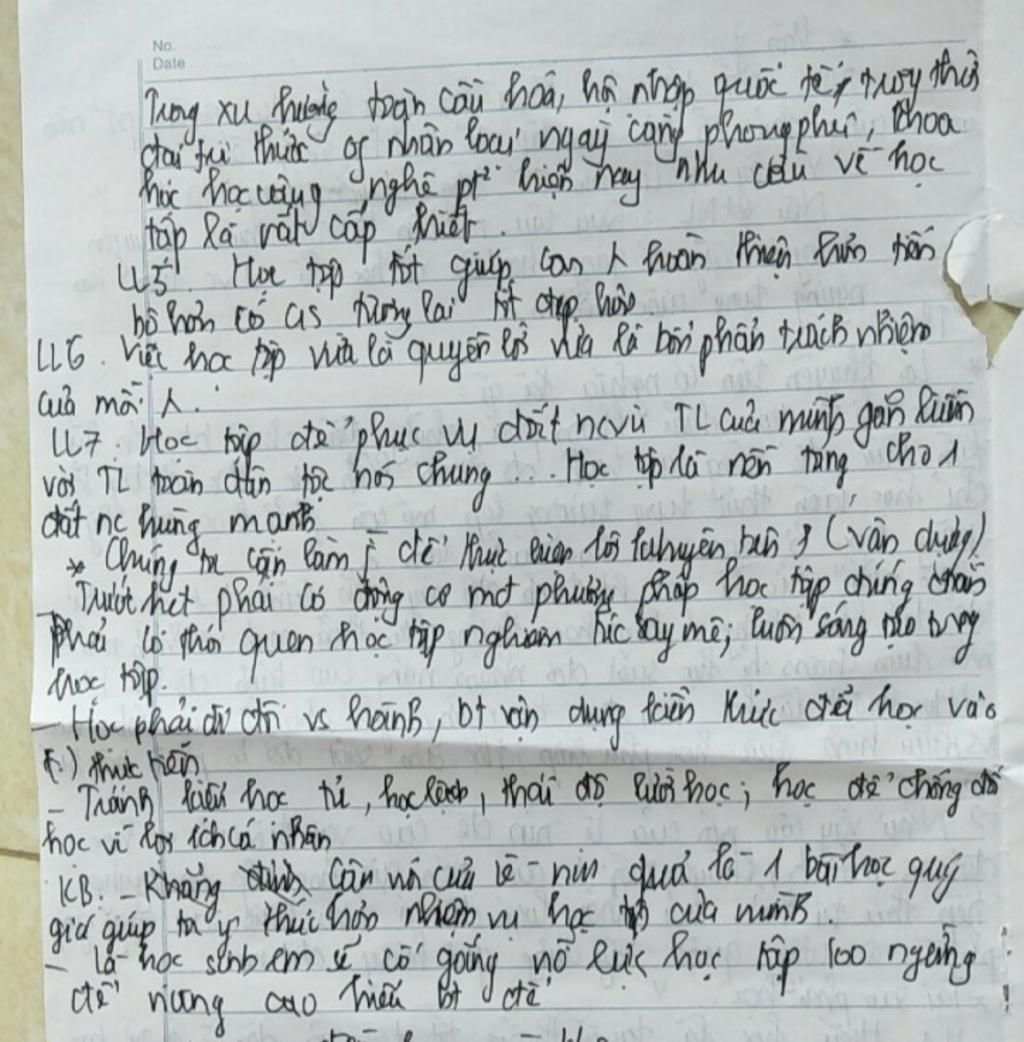 No.
Date
Trong xu hướng toàn cầu hoá, hộ nhập quốc tế, trong thời
đại tri thức of nhân loại ngày càng phong phú, khoa
học học công nghệ pt² hiện nay nhu cầu về học
tập là rất cấp thiết.
LL5 Học tập tốt giúp con λ hoàn thiện hơn tiến
bộ hơn có cs tương lai tốt đẹp hơn
LL6. Việc học tập vừa là quyền lợi vừa là bổn phận trách nhiệm
của mỗi λ.
LL7. Học tập để phục vụ đất nc vì TL của mình gắn liền
với TL toàn dân tộc nói chung ... Học tập là nền tảng cho 1
đất nc hùng mạnh
* Chúng ta cần làm j để thực hiện lời khuyên trên ? (vận dụng)
- Trước hết phải có động cơ mđ phương pháp học tập đúng đắn
phải có thói quen học tập nghiêm túc say mê; luôn sáng tạo trong
học tập.
- Học phải đi đôi vs hành, bt vận dụng kiến thức để học vào
(.) thực tiễn
- Tránh kiểu học tủ, học lệch, thái độ lười học; học để chống đối
học vì lợi ích cá nhân
KB. - Khẳng định câu nói của Lê-nin quả là 1 bài học quý
giá giúp ta ý thức hơn nhiệm vụ học tập của mình.
- Là học sinh em sẽ cố gắng nỗ lực học tập ko ngừng
để nâng cao hiểu bt để